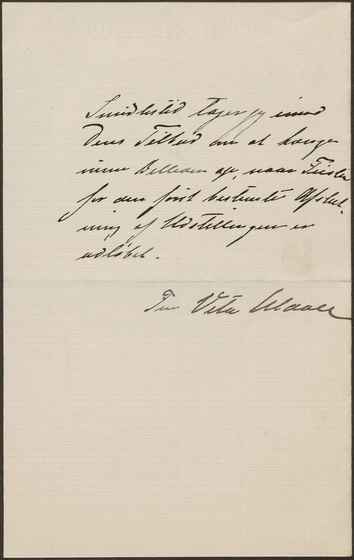 Imidlertid tager jeg imod
Deres Tilbud om at hænge
mine Billeder op, naar Tiden
for den først bestemte Afslut-
ning af Udstillingen er
udløbet.